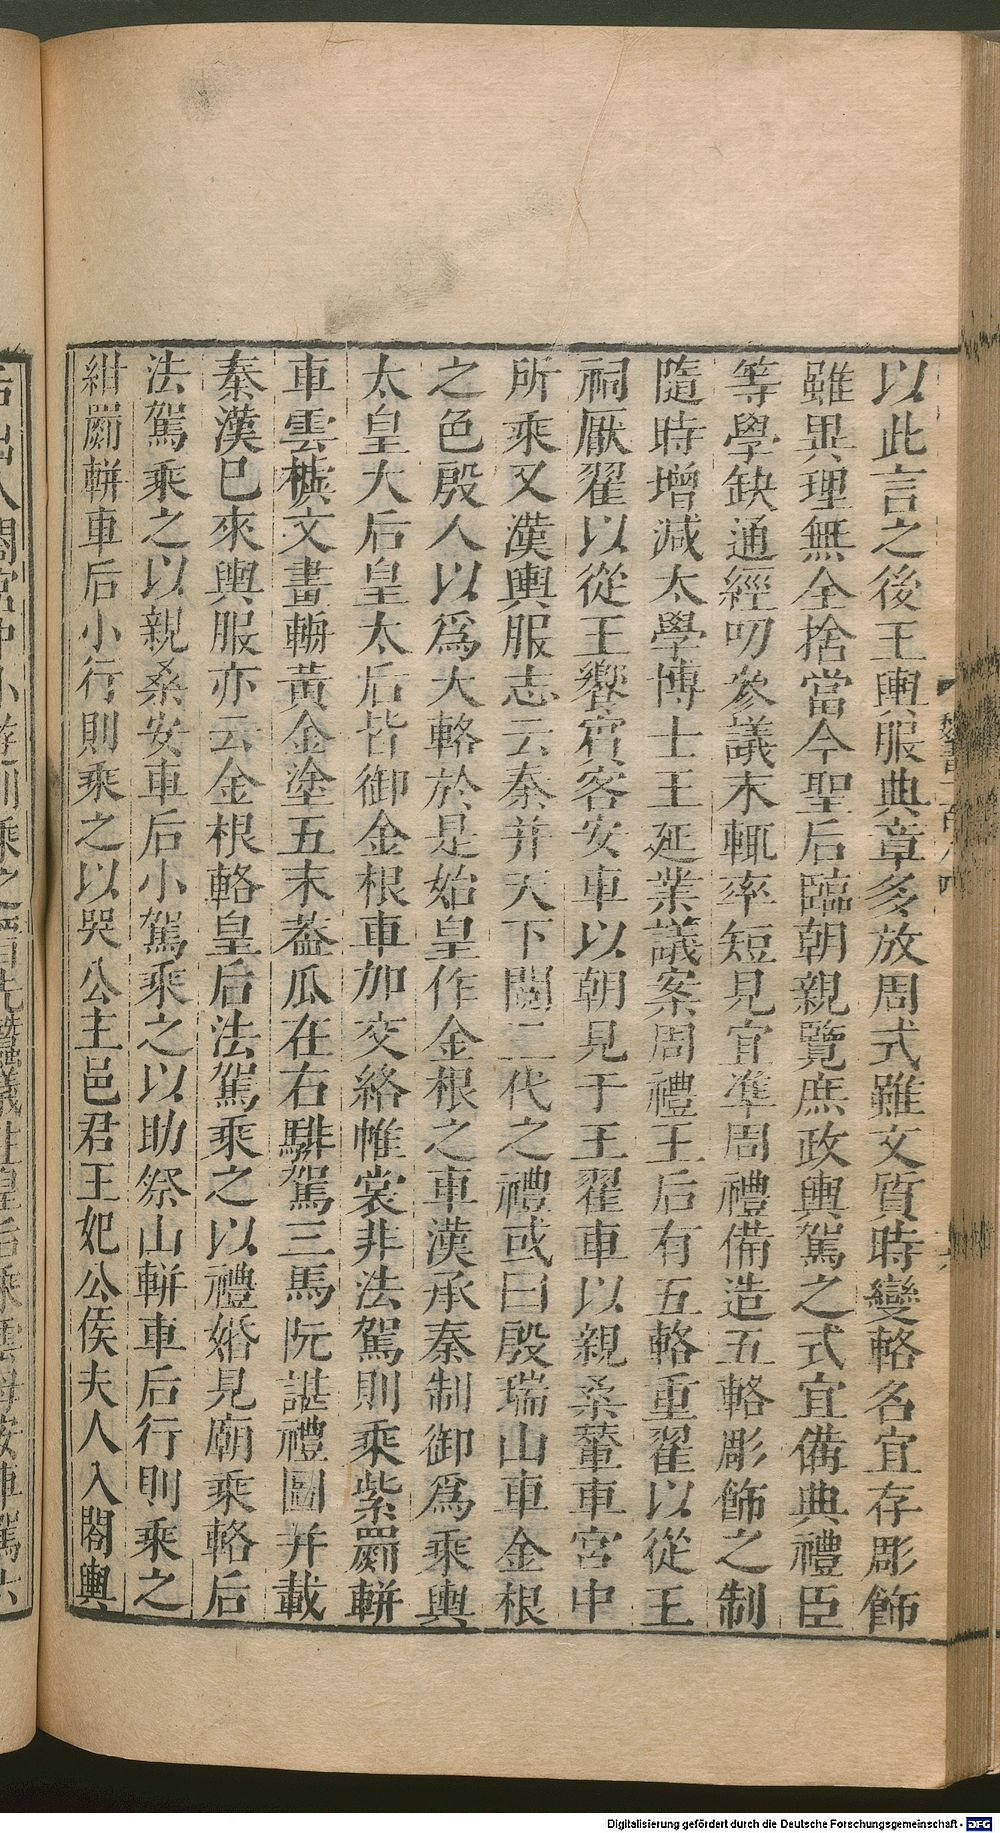 以此言之後王輿服典章多放周式雖文質時變輅名宜存彫飾
雖異理無全捨當今聖后臨朝親覽庶政輿駕之式宜備典禮臣
等學缺通經叨參議末輒率短見宜準周禮備造五輅彫飾之制
隨時增減太學博士王延業議案周禮王后有五輅重翟以從王
祠厭翟以從王饗賓客安車以朝見于王翟車以親桑輦車宮中
所乘又漢輿服志云秦并天下閱三代之禮或曰殷瑞山車金根
之色殷人以爲大輅於是始皇作金根之車漢承秦制御爲乘輿
太皇大后皇太后皆御金根車加交絡帷裳非法駕則乘紫罽軿
車雲㯋文畫輈黃金塗五末蓋瓜在右騑駕三馬阮諶禮圖并載
秦漢巳來輿服亦云金根輅皇后法駕乘之以禮婚見廟乘輅后
法駕乘之以親桑安車后小駕乘之以助祭山軿車后行則乘之
紺罽軿車后小行則乘之以哭公主邑君王妃公侯夫人入閤輿
Digitalisierung gefördert durch die Deutsche Forschungsgemeinschaft - DFG